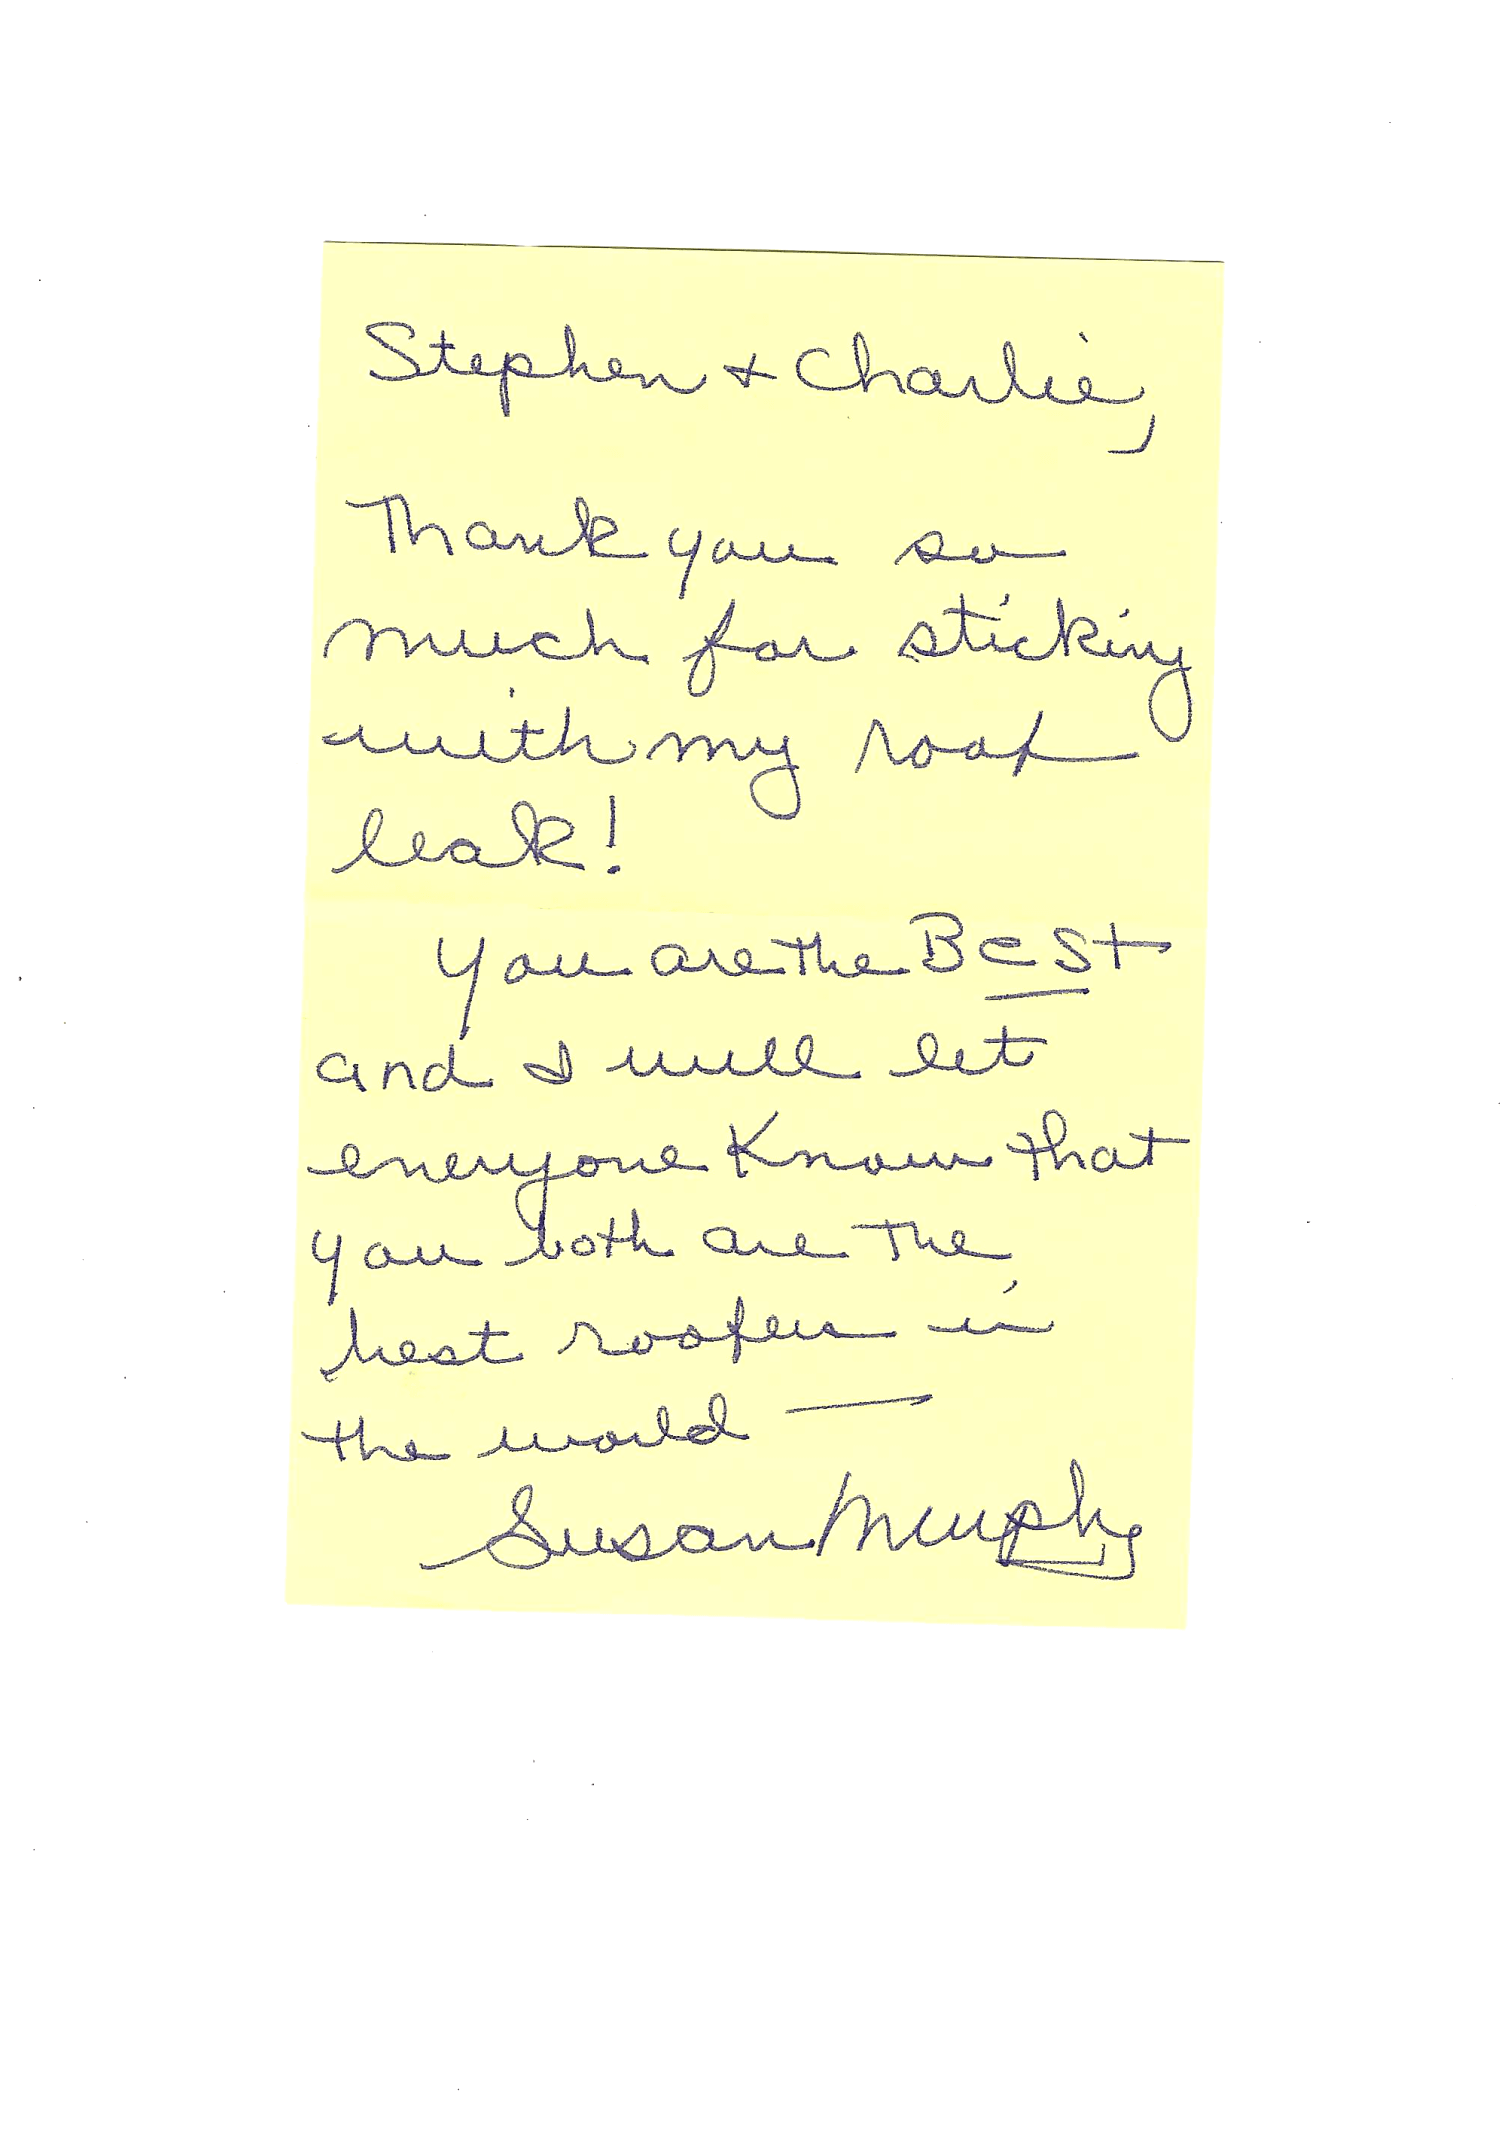 Stephen + Charlie,
Thank you so
much for sticking
with my roof
leak!
You are the BeSt
and I will let
everyone Know that
you both are the
best roofers in
the world —
Susan Murphy